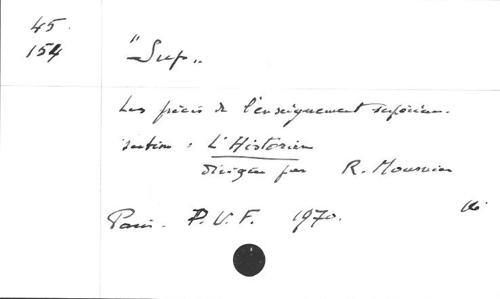 45.
154
"Sup"
Les précis de l'enseignement supérieur.
section : L'Historien
dirigée par R. Mousnier
Paris. P.U.F. 1970.